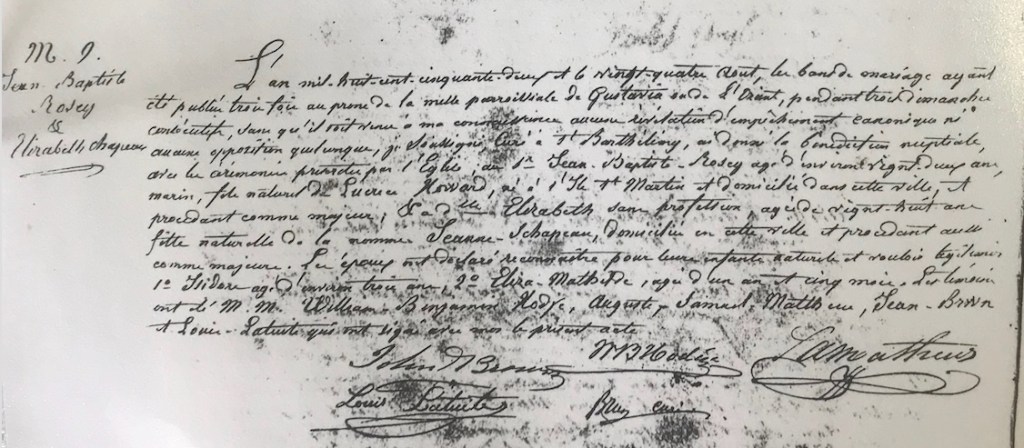 M. 9.
Jean-Baptiste
Rosey
&
Elizabeth Chapeau
L'an mil-huit-cent-cinquante-deux et le vingt-quatre Aout, les bans de mariage ayant
été publiés trois fois au prone de la messe parroissiale de Gustavia ou de L'Orient, pendant trois dimanches
consécutifs, sans qu'il soit venu à ma connaissance aucune révélation d'empêchement canonique ni
aucune opposition quelconque, je soussigné Curé à St Barthélémy, ai donné la bénédiction nuptiale,
avec les cérémonies prescrites par l'Eglise, au Sr Jean-Baptiste-Rosey agé d'environ vingt-deux ans,
marin, fils naturel de Lucrece Howard, né à l'Ile St Martin et domicilié dans cette ville, et
procedant comme majeur; & a dlle Elizabeth sans profession, agée de vingt-huit ans
fille naturelle de la nommée Jeanne-Schapeau, domiciliée en cette ville et procedant aussi
comme majeure. Les époux ont déclaré reconnaitre pour leurs enfants naturels et vouloir légitimer
1o Isidore agé d'environ trois ans, 2o Eliza-Mathilde, agée d'un an et cinq mois. Les témoins
ont été M. M. William-Benjamin Hodge, Auguste, Samuel Matheus, Jean-Brown
et Louis-Latuite qui ont signé avec moi le présent acte
John Brown
WB Hodge
SaMatheus
Louis Latuite
curé